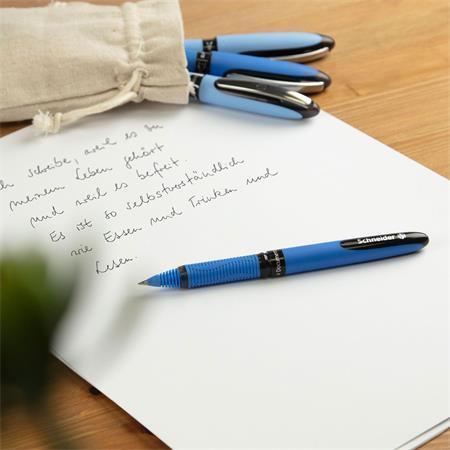 ch schreibe, weil es zu
meinem Leben gehört
und weil es befreit.
Es ist so selbstverständlich
wie Essen und Trinken und
Lesen.
Schneider
Document